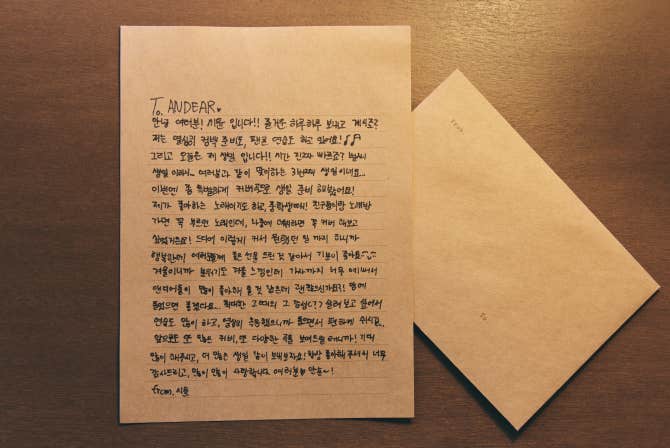 To. ANDEAR♥
안녕 여러분! 시윤 입니다!! 즐거운 하루하루 보내고 계시죠?
저는 열심히 컴백 준비도, 팬콘 연습도 하고 있어요!♪♫
그리고 오늘은 제 생일 입니다!! 시간 진짜 빠르죠? 벌써
생일 이라니.. 여러분과 같이 맞이하는 3번째 생일이네요..
이번엔 좀 특별하게 커버곡으로 생일 준비 해봤어요!
제가 좋아하는 노래이기도 하고, 중학생때 친구들이랑 노래방
가면 꼭 부르던 노래인데, 나중에 데뷔하면 꼭 커버 해보고
싶었거든요! 드디어 이렇게 커서 원했던 일 까지 하니까
행복한데 여러분께 좋은 선물 드린 것 같아서 기분이 좋아요
겨울이니까 분위기도 겨울 느낌인데 가사까지 너무 예뻐서
앤디어들이 많이 좋아해 줄 것 같은데 괜찮으실까요?! 맘에
들었으면 좋겠다요.. 최대한 그때의 그 감성 살려 보고 싶어서
연습도 많이 하고, 열심히 준비했으니까 들으면서 편하게 쉬시고..
앞으로도 또 많은 커버, 또 다양한 곡들 보여드릴 테니까! 기대
많이 해주시고, 더 많은 생일 같이 보내보자요! 항상 좋아해 주셔서 너무
감사드리고, 많이 많이 사랑합니다 여러분♥ 안뇽~!
From. 시윤
From
To